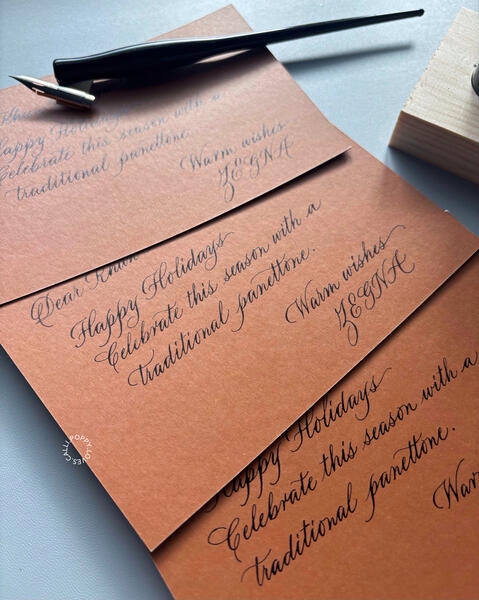 Happy Holidays
Celebrate this season with a
traditional panettone.
Warm wishes
ZEGNA
Dear
Happy Holidays
Celebrate this season with a
traditional panettone.
Warm wishes
ZEGNA
Happy Holidays
Celebrate this season with a
traditional panettone.
CALLI.POPPY.LOVES